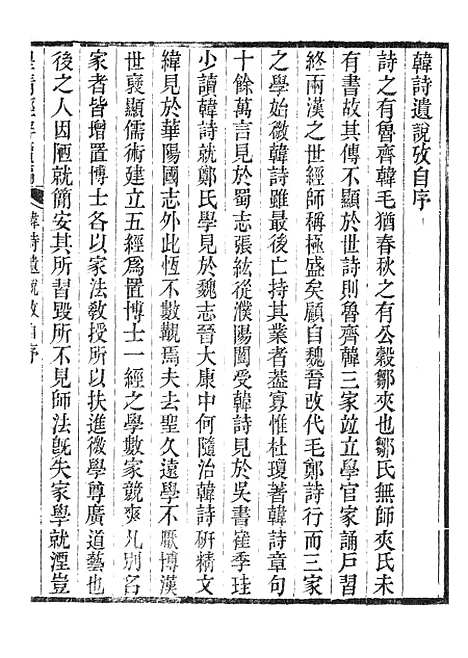 韓詩遺說攷自序
詩之有魯齊韓毛猶春秋之有公穀鄒夾也鄒氏無師夾氏未
有書故其傳不顯於世詩則魯齊韓三家竝立學官家誦戶習
終兩漢之世經師稱極盛矣顧自魏晉改代毛鄭詩行而三家
之學始微韓詩雖最後亡持其業者蓋寡惟杜瓊著韓詩章句
十餘萬言見於蜀志張紘從濮陽闓受韓詩見於吳書崔季珪
少讀韓詩就鄭氏學見於魏志晉大康中何隨治韓詩研精文
緯見於華陽國志外此恆不數覯焉夫去聖久遠學不厭博漢
世襃顯儒術建立五經爲置博士一經之學數家競爽凡別名
家者皆增置博士各以家法敎授所以扶進微學尊廣道藝也
後之人因陋就簡安其所習毀所不見師法旣失家學就湮豈
韓詩遺說攷自序